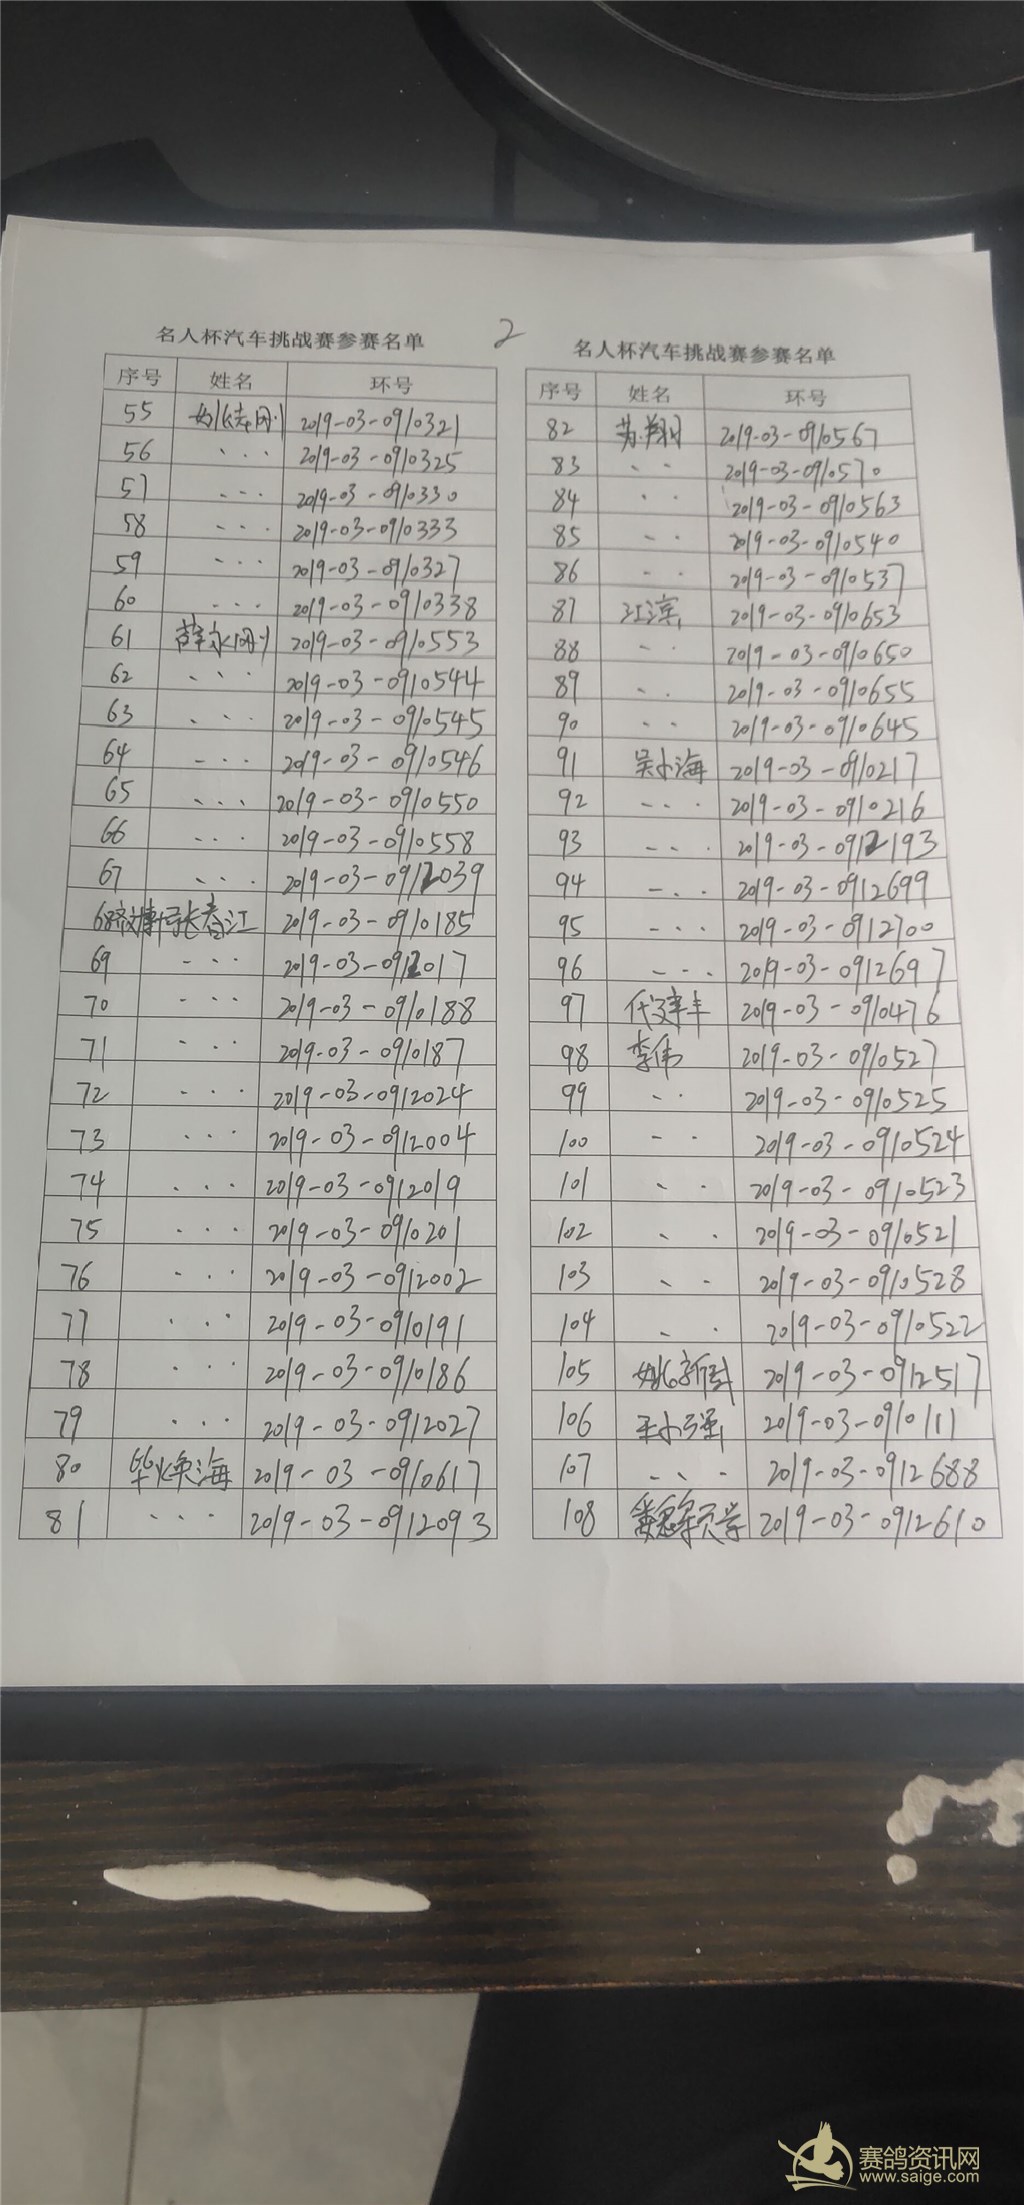 2
名人杯汽车挑战赛参赛名单
序号 姓名 环号
55 姚志刚 2019-03-0910321
56 ··· 2019-03-0910325
57 ··· 2019-03-0910330
58 ··· 2019-03-0910333
59 ··· 2019-03-0910327
60 ··· 2019-03-0910338
61 薛永刚 2019-03-0910553
62 ··· 2019-03-0910544
63 ··· 2019-03-0910545
64 ··· 2019-03-0910546
65 ··· 2019-03-0910550
66 ··· 2019-03-0910558
67 ··· 2019-03-0912039
68 张春江 2019-03-0910185
69 ··· 2019-03-0912017
70 ··· 2019-03-0910188
71 ··· 2019-03-0910187
72 ··· 2019-03-0912024
73 ··· 2019-03-0912004
74 ··· 2019-03-0912019
75 ··· 2019-03-0910201
76 ··· 2019-03-0912002
77 ··· 2019-03-0910191
78 ··· 2019-03-0910186
79 ··· 2019-03-0912027
80 毕焕海 2019-03-0910617
81 ··· 2019-03-0912093
名人杯汽车挑战赛参赛名单
序号 姓名 环号
82 苏翔 2019-03-0910567
83 ·· 2019-03-0910570
84 ·· 2019-03-0910563
85 ·· 2019-03-0910540
86 ·· 2019-03-0910537
87 江滨 2019-03-0910653
88 ·· 2019-03-0910650
89 ·· 2019-03-0910655
90 ·· 2019-03-0910645
91 吴小海 2019-03-0910217
92 ··· 2019-03-0910216
93 ··· 2019-03-0912193
94 ··· 2019-03-0912699
95 ··· 2019-03-0912700
96 ··· 2019-03-0912697
97 代建丰 2019-03-0910476
98 李伟 2019-03-0910527
99 ·· 2019-03-0910525
100 ·· 2019-03-0910524
101 ·· 2019-03-0910523
102 ·· 2019-03-0910521
103 ·· 2019-03-0910528
104 ·· 2019-03-0910522
105 姚新 2019-03-0912517
106 王小强 2019-03-0910111
107 ··· 2019-03-0912688
108 2019-03-0912610
赛鸽资讯网
www.saige.com